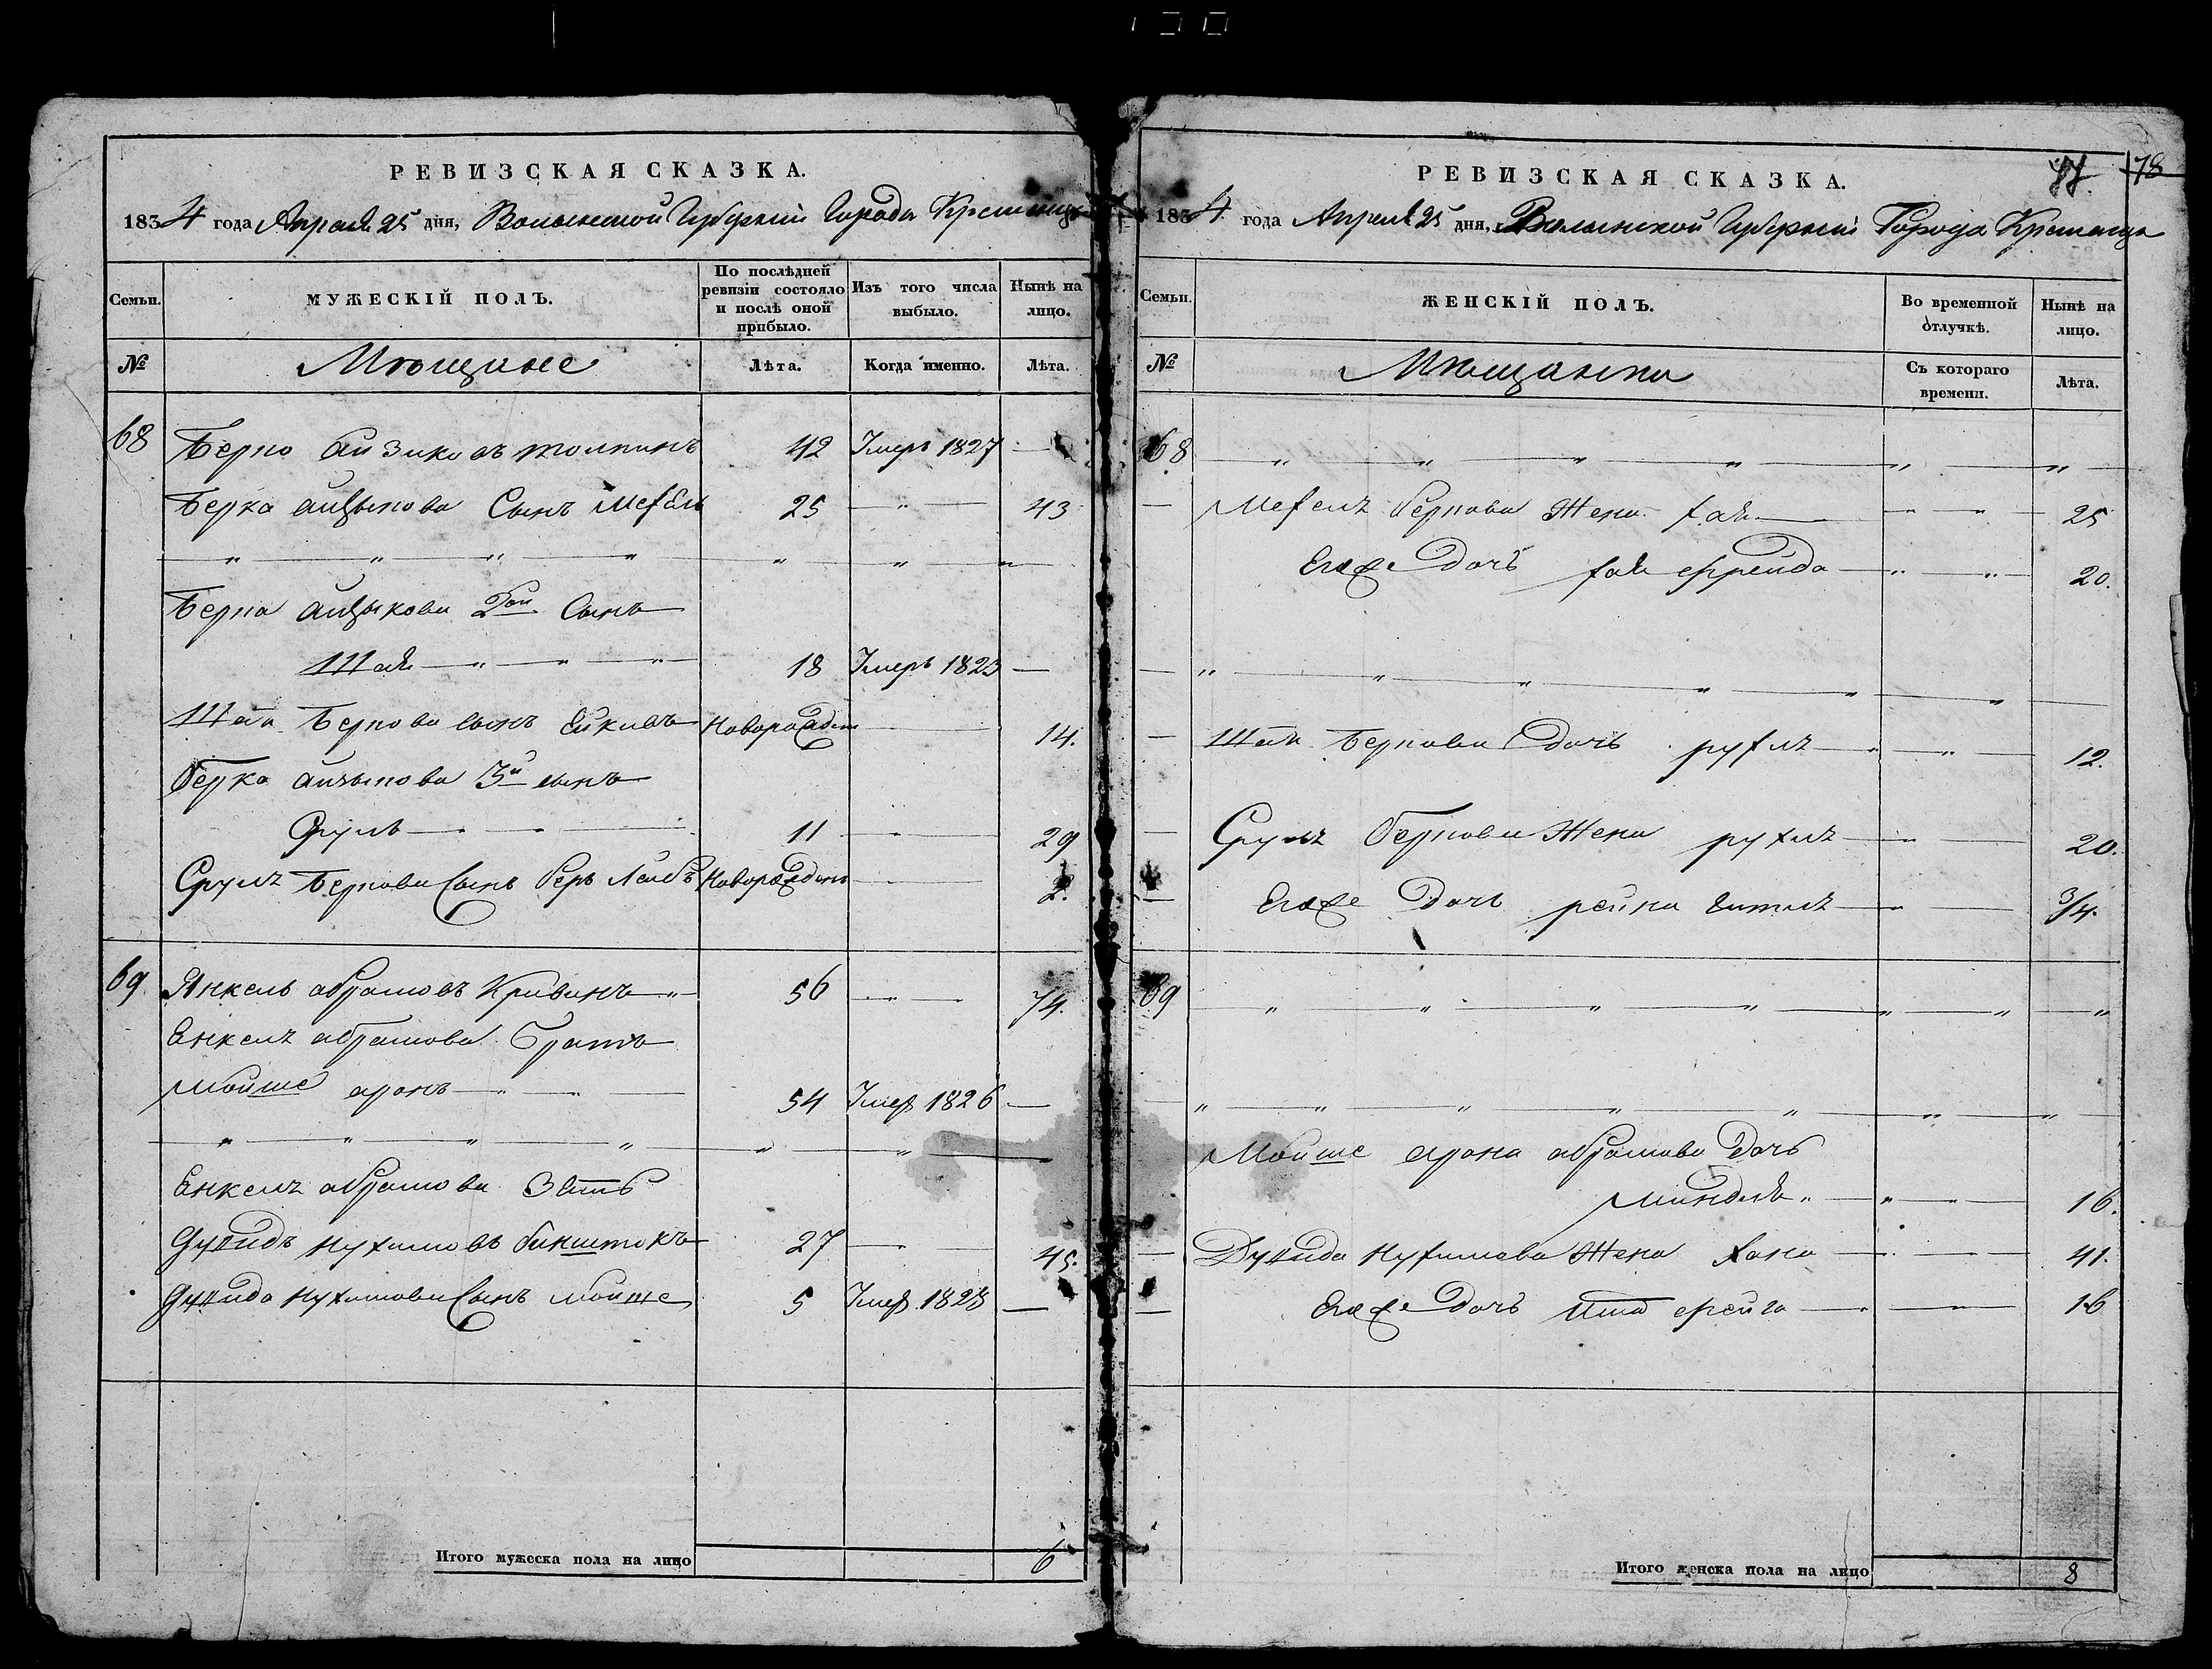 РЕВИЗСКАЯ СКАЗКА.
1834 года Апреля 25 дня, Волынской Губернии Города Кременца
Семьи.
МУЖЕСКІЙ ПОЛЪ.
По послѣдней ревизіи состояло и послѣ оной прибыло.
Изъ того числа выбыло.
Нынѣ на лицо.
№
Мѣщане
Лѣта.
Когда именно.
Лѣта.
68 Берко Айзиковъ 42 Умеръ 1827 —
Берка айцыкова Сынъ 25 — " — 43
— " — " — " — " — " — " — " —
Берка айцыкова 2ой Сынъ
Шая — " — " — " 18 Умеръ 1823 —
Шая Беркова сынъ Новорожден — 14.
Берка айзыкова 3й сынъ
Сруль — 11 — " — 29
Сруль Беркова Сынъ беръ Лейбъ Новорожденъ — 2.
69 Янкель абрамовъ Кривинъ — " 56 — " — 74.
Енкель абрамова Братъ
Мойше аронъ — " — 54 Умер 1826 —
— " — " — " — " — " — " —
Енкель абрамова Зять
нухимовъ 27 — " — 45.
нухимова Сынъ мойше 5 Умер 1828 —
Итого мужеска пола на лицо 6
РЕВИЗСКАЯ СКАЗКА.
78
1834 года Апреля 25 дня, Волынской Губернии Города Кременца
Семьи.
ЖЕНСКІЙ ПОЛЪ.
Во временной отлучкѣ.
Нынѣ на лицо.
№
Мѣщанки
Съ котораго времени.
Лѣта.
68 — " — " — " — " — " — " —
— Беркова Жена хая — " — " — 25
Егоже Дочь хая фрейда — " — " — 20.
— " — " — " — " — " — " —
— Шая Беркова Дочь рухль — " — " — 12.
— Сруль Беркова Жена рухль — " — 20.
— Егоже Дочь рейна — " — 3/4.
69 — " — " — " — " — " — " — "
— " — " — " — " — " — " — " —
Мойше арона абрамова Дочь
миндля " — " — " — 16.
— нухимова Жена Хана — " — 41.
— Егоже Дочь фейга — " — 16
Итого женска пола на лицо 8